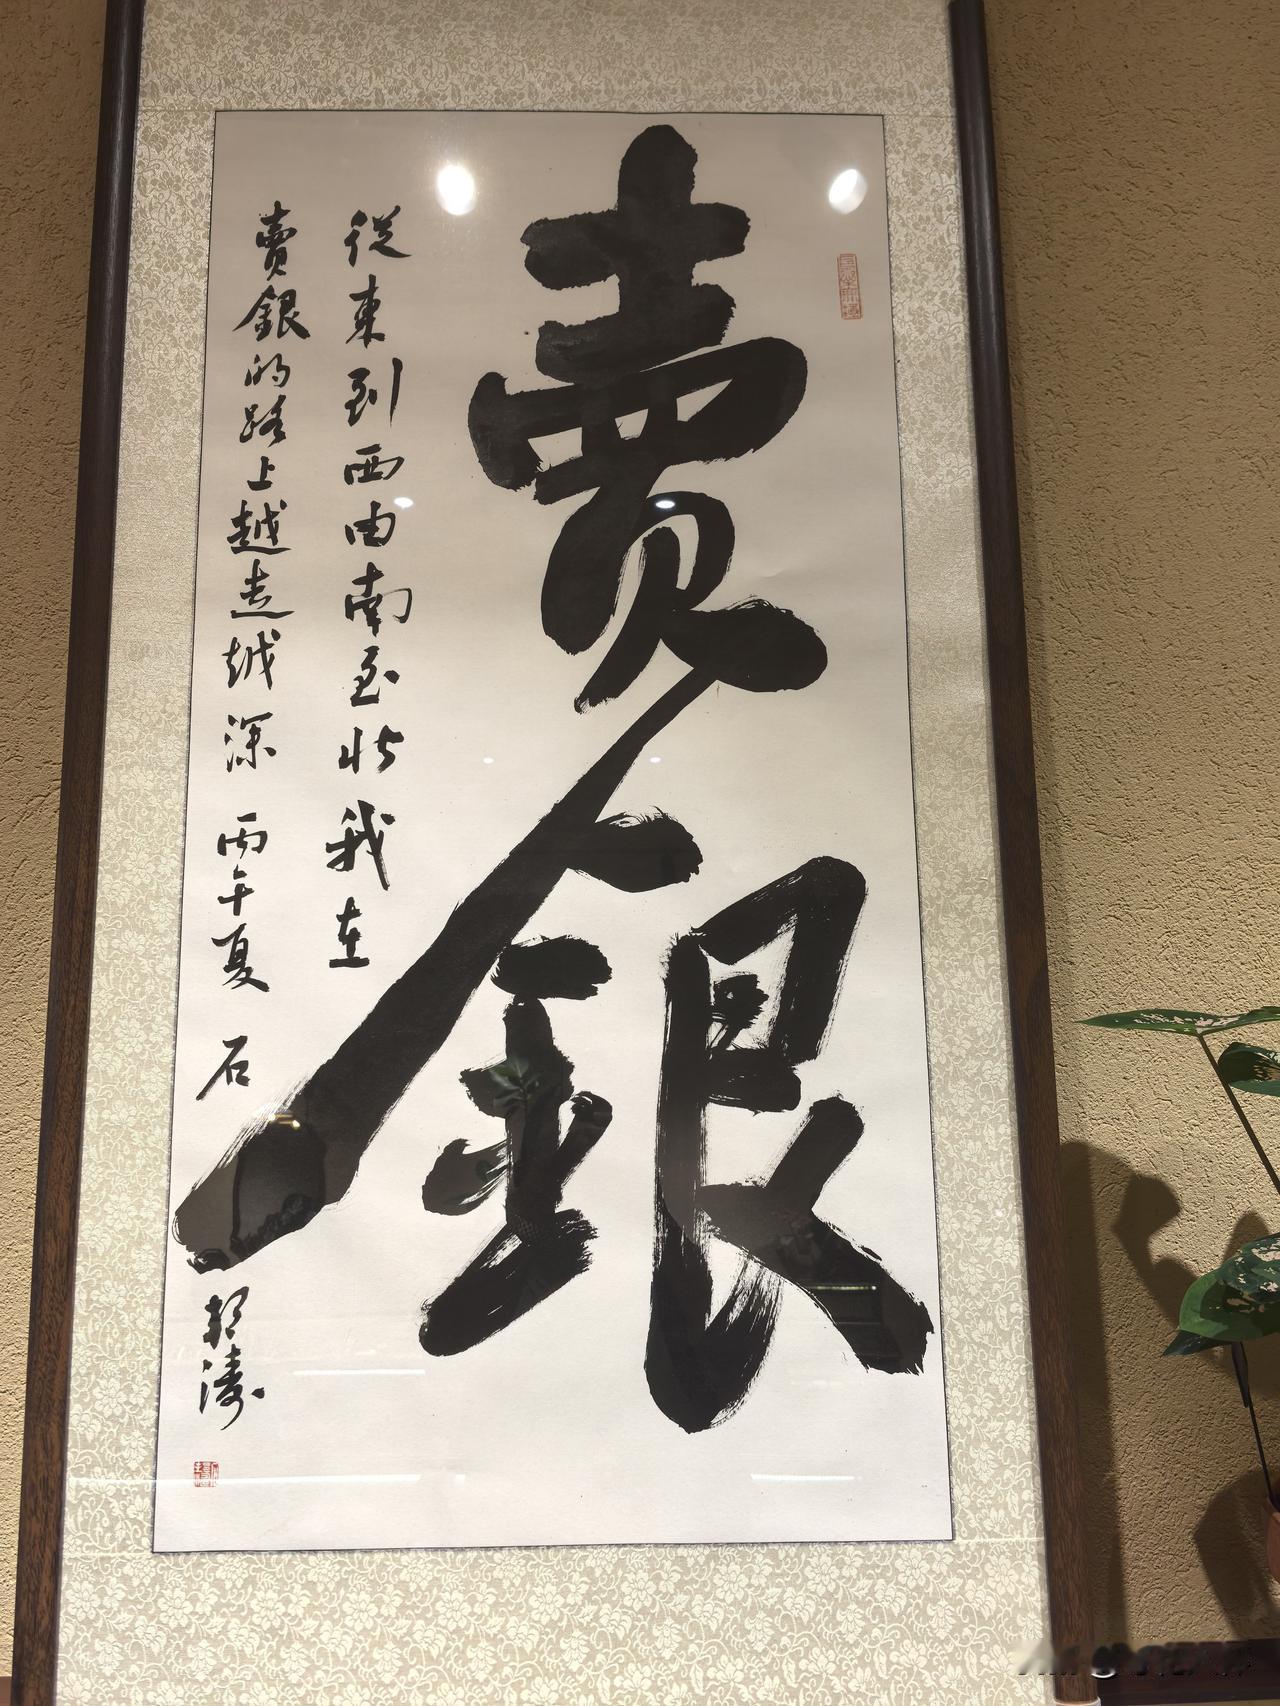 賣銀
從東到西由南至北我在
賣銀的路上越走越深 丙午夏 石